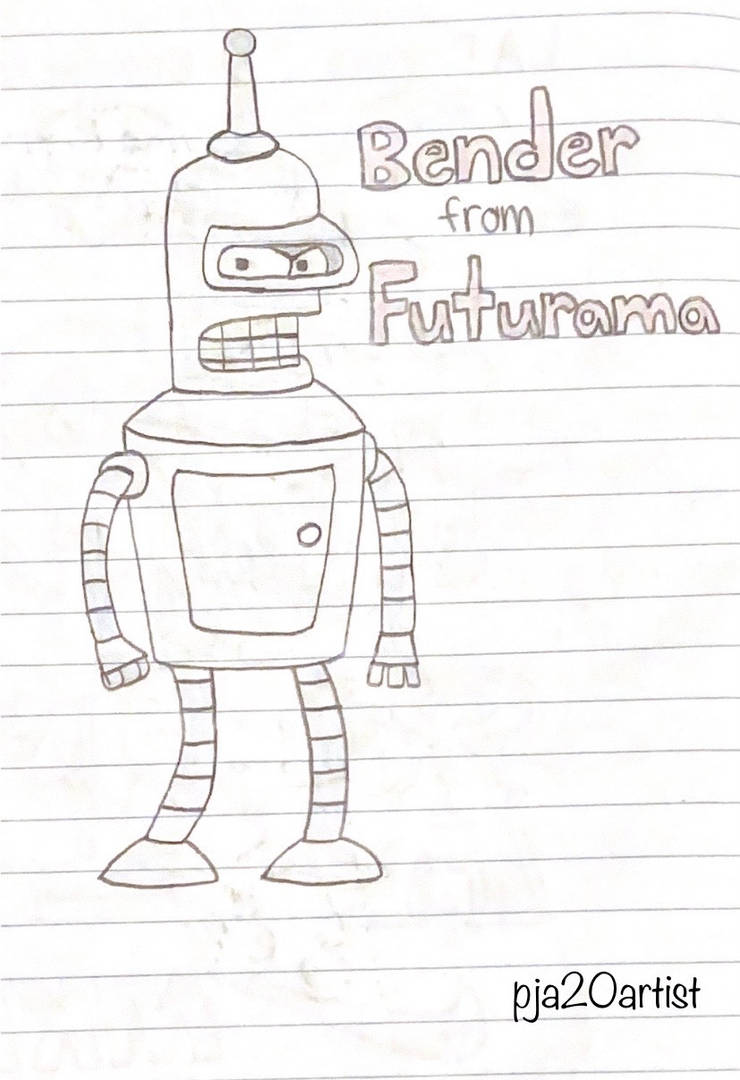 Bender
from
Futurama
pja20artist